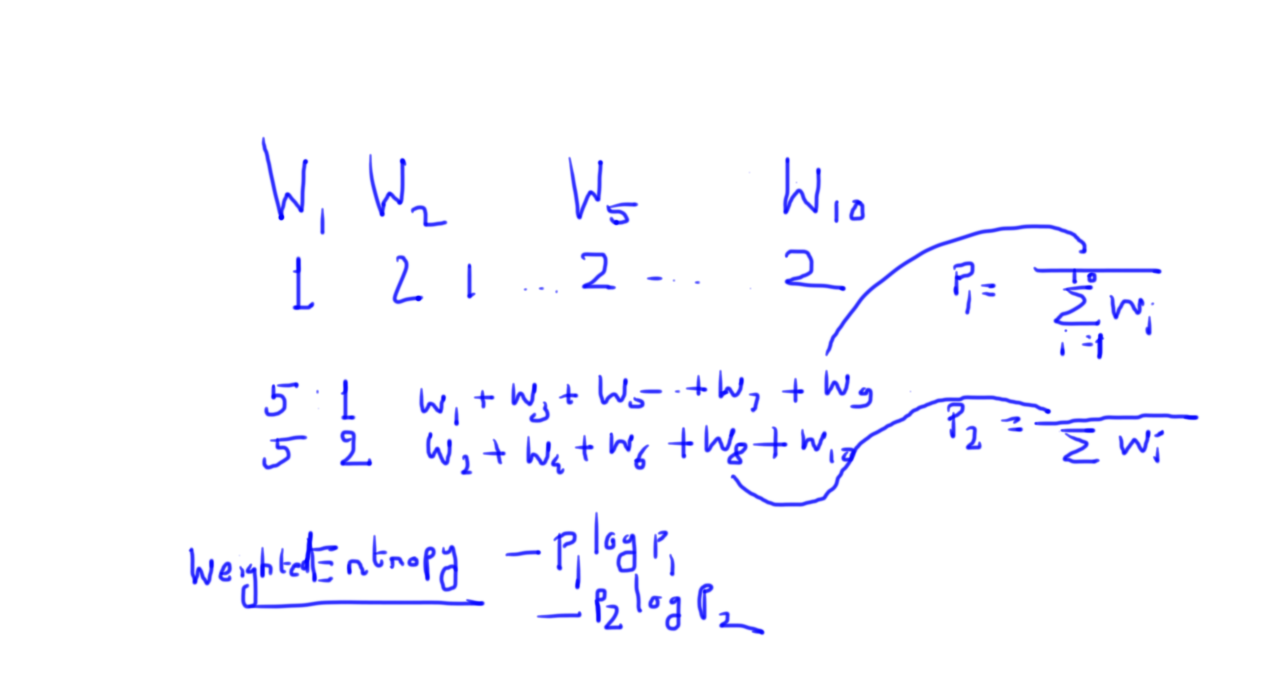 W₁ W₂ W₅ W₁₀
1 2 1 ... 2 - .. 2
P₁ = ─── / ∑ᵢ₌₁¹⁰ wᵢ
5 1 w₁ + w₃ + w₅ - .. + w₇ + w₉
5 2 w₂ + w₄ + w₆ + w₈ + w₁₀
P₂ = ─── / ∑ wᵢ
Weighted Entropy — P₁ log P₁
— P₂ log P₂